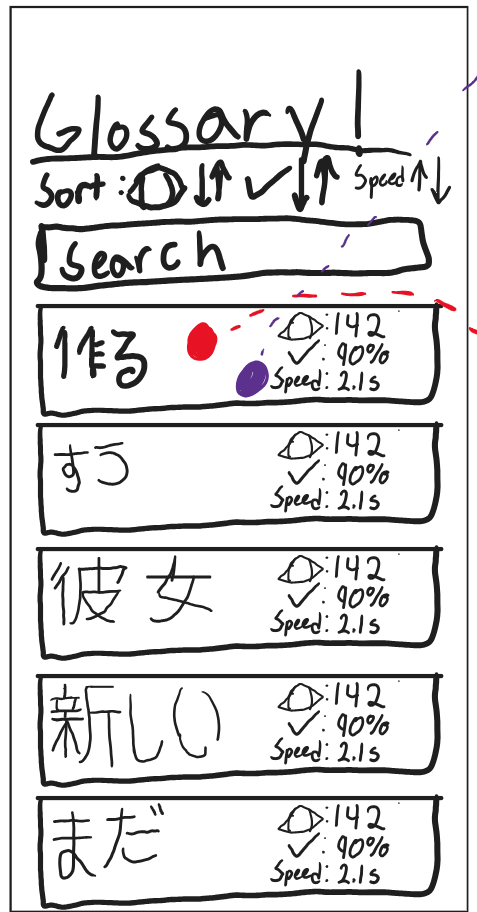 Glossary!
Sort: ↓↑ ✓ ↓↑ Speed ↑↓
Search
作る
: 142
✓: 90%
Speed: 2.1s
すう
: 142
✓: 90%
Speed: 2.1s
彼女
: 142
✓: 90%
Speed: 2.1s
新しい
: 142
✓: 90%
Speed: 2.1s
まだ
: 142
✓: 90%
Speed: 2.1s